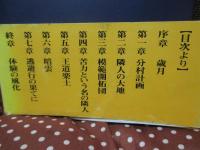 【目次より】
序章 歳月
第一章 分村計画
第二章 隣人の大地
第三章 模範開拓団
第四章 苦力という名の隣人
第五章 王道楽土
第六章 暗雲
第七章 逃避行の果てに
終章 体験の風化